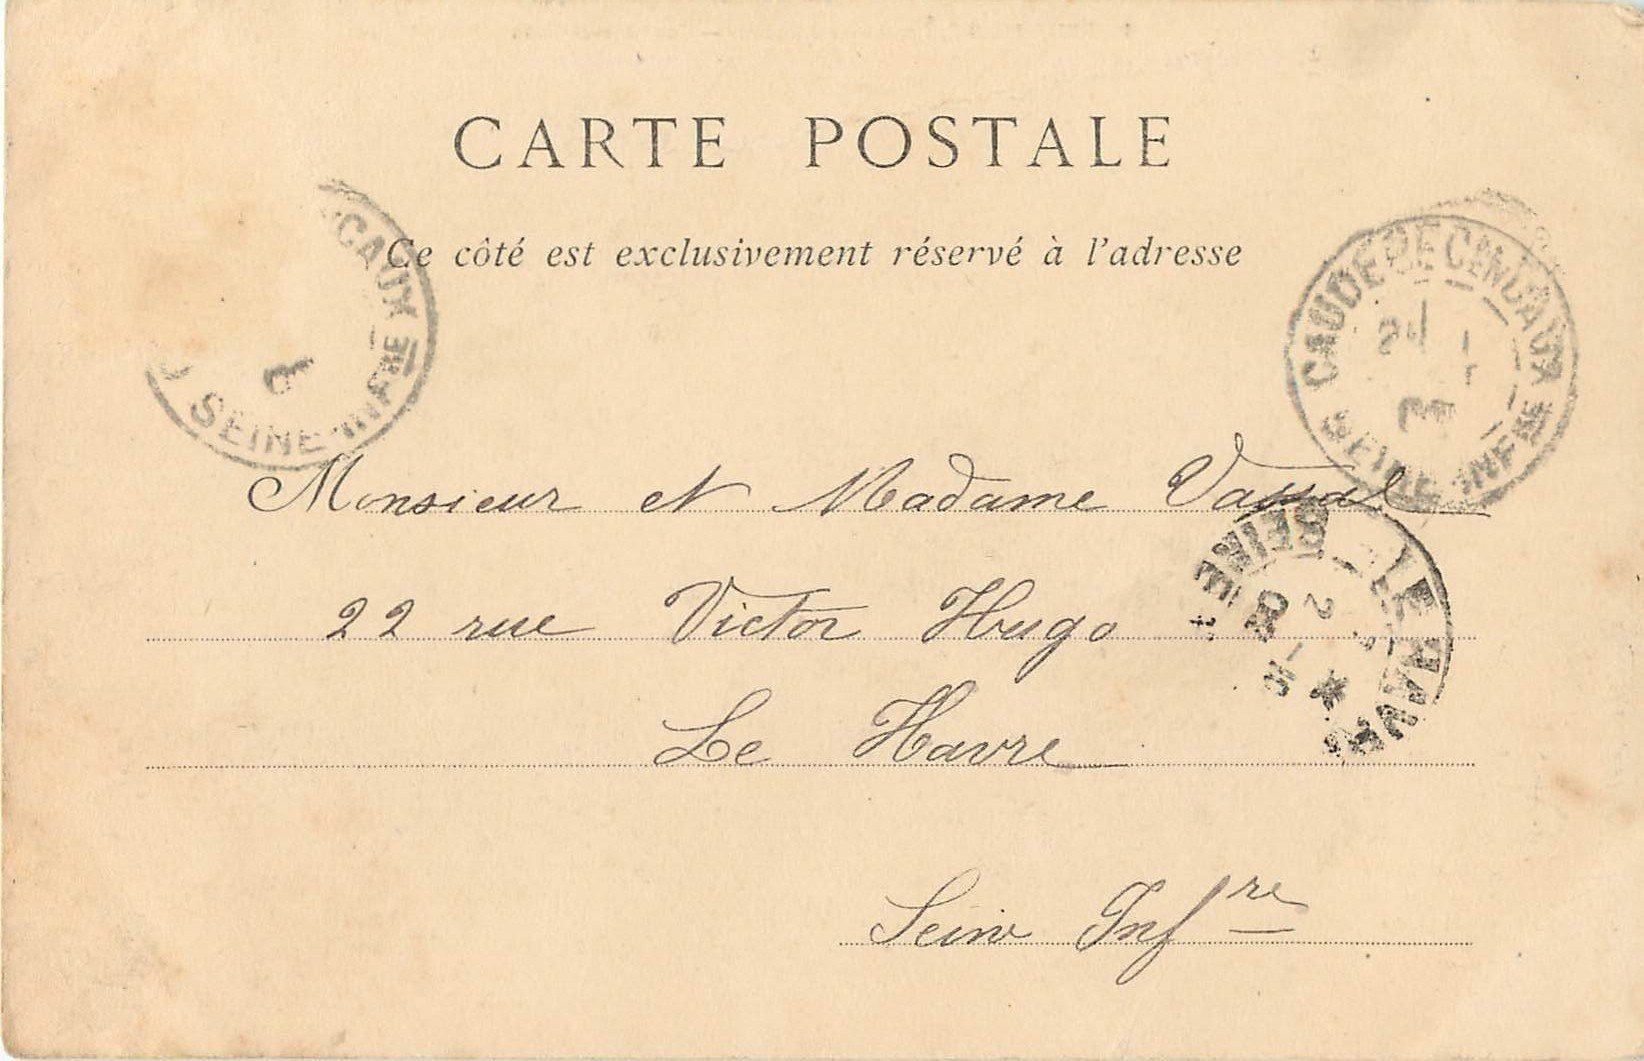 CARTE POSTALE
Ce côté est exclusivement réservé à l'adresse
CAUX
SEINE INFRE
CAUDEBEC EN CAUX
SEINE INFRE
Monsieur et Madame Vassal
22 rue Victor Hugo
Le Havre
Seine Infre
LE HAVRE
SEINE